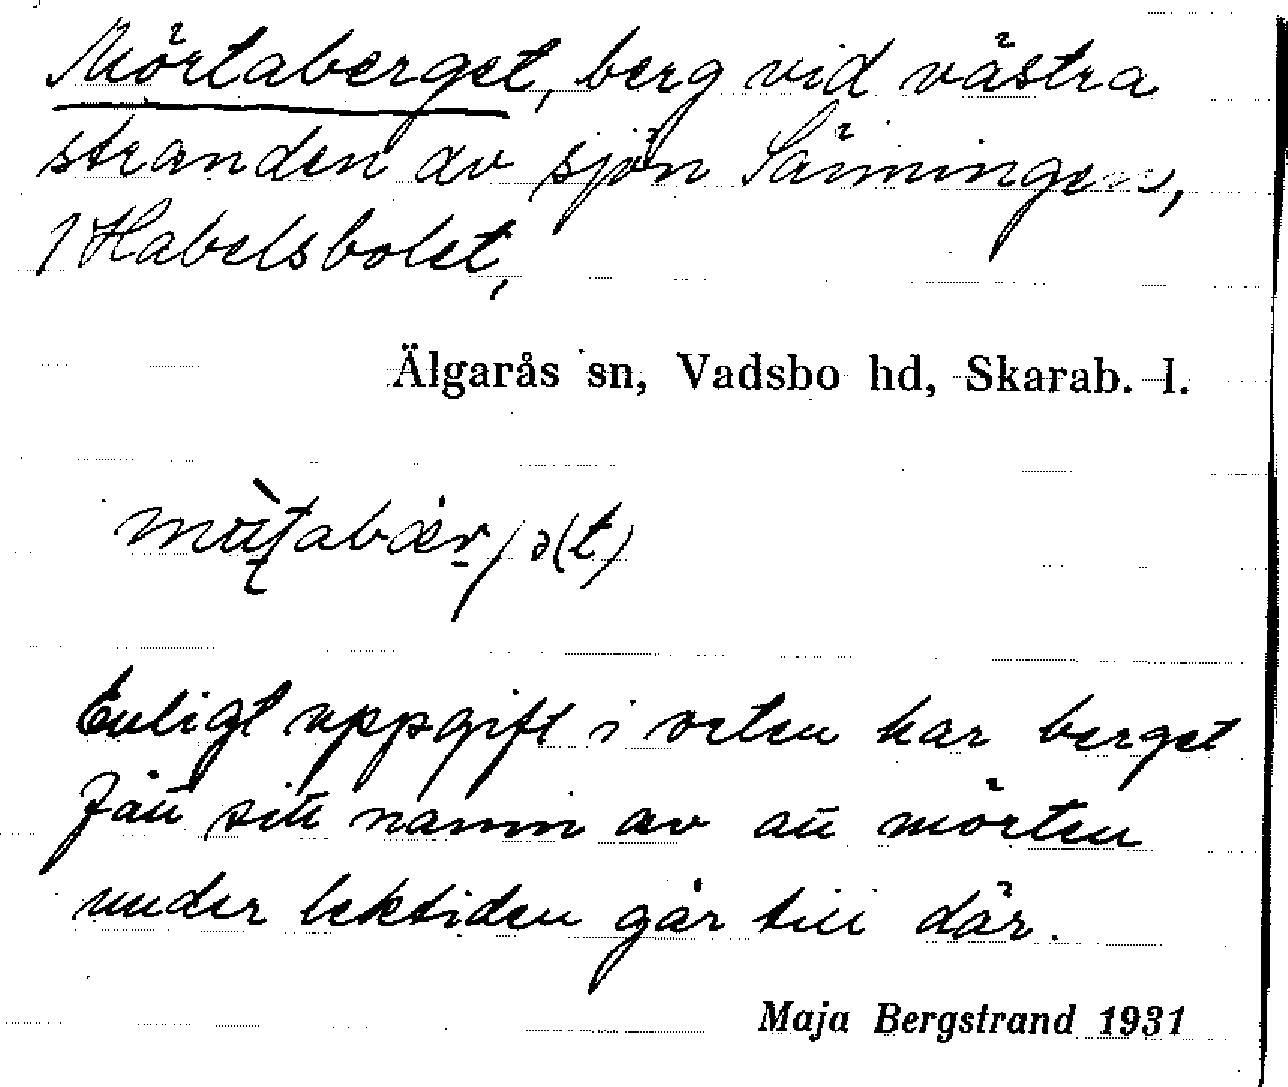 Mörtaberget, berg vid västra
stranden av sjön Sänningen,
1 Habelsbolet,
Älgarås sn, Vadsbo hd, Skarab. l.
Enligt uppgift i orten har berget
fått sitt namn av att mörten
under lektiden går till där.
Maja Bergstrand 1931